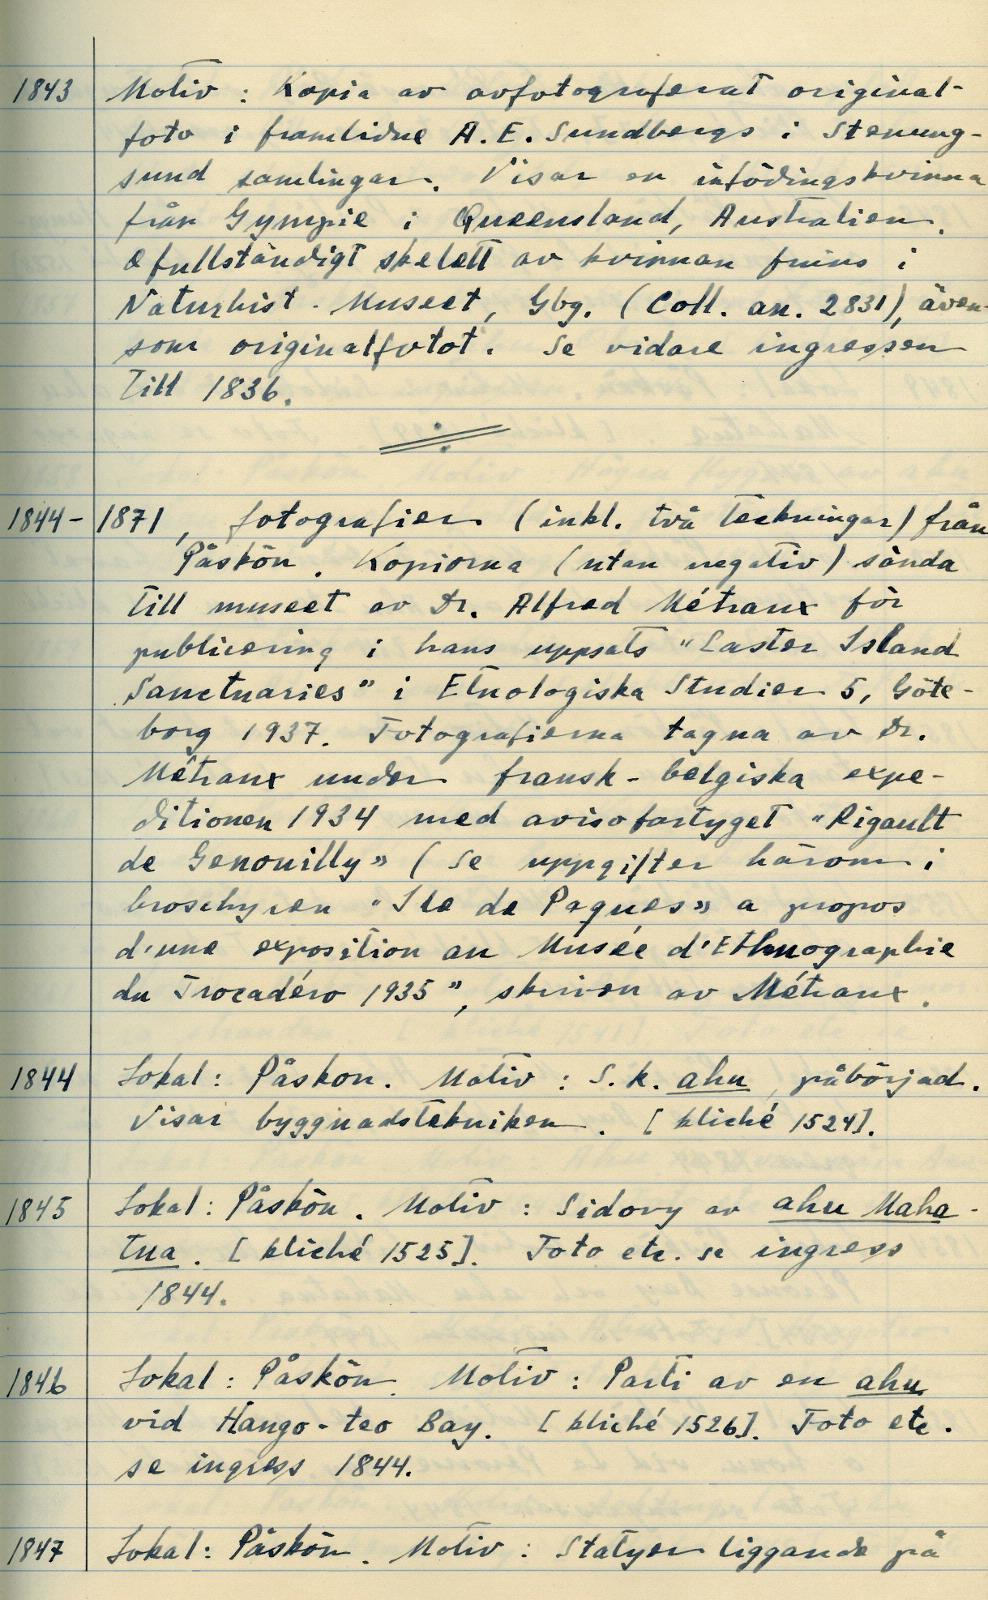 1843 Motiv: Kopia av avfotograferat original-
foto i framlidne A. E. Sundbergs i Stenung-
sund samlingar. Visar en infödingskvinna
från Gympie i Queensland, Australien.
Ofullständigt skelett av kvinnan finns i
Naturhist. Museet, Gbg. (Coll. an. 2831), även-
som originalfotot. Se vidare ingressen
till 1836.
1844-1871, fotografier (inkl. två teckningar) från
Påskön. Kopiorna (utan negativ) sända
till museet av Dr. Alfred Métraux för
publicering i hans uppsats "Easter Island
Sanctuaries" i Etnologiska Studier 5, Göte-
borg 1937. Fotografierna tagna av Dr.
Métraux under fransk-belgiska expe-
ditionen 1934 med avisofartyget "Rigault
de Genouilly" (se uppgifter härom i
broschyren "Ile de Paques" a propos
d'une exposition au Musée d'Ethnographie
du Trocadéro 1935", skriven av Métraux.
1844 Lokal: Påskön. Motiv: S.k. ahu, påbörjad.
Visar byggnadstekniken. [kliché 1524].
1845 Lokal: Påskön. Motiv: Sidovy av ahu Maha-
tua. [kliché 1525]. Foto etc. se ingress
1844.
1846 Lokal: Påskön. Motiv: Parti av en ahu
vid Hango-teo Bay. [kliché 1526]. Foto etc.
se ingress 1844.
1847 Lokal: Påskön. Motiv: Statyer liggande på